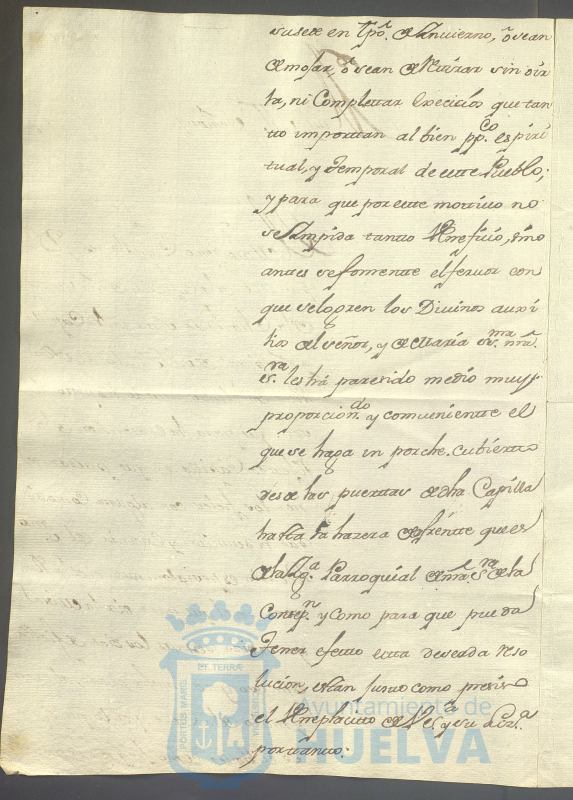 susede en tpo. de Inuierno, ô sean
de mojar, ô sean de Retirar sin oir
la, ni Complettar exercicios que tan
tto importtan al bien ppco. espiri
tual, y temporal de estte Pueblo;
y para que por estte mottiuo no
se Impida tantto Beneficio, sino
anttes se fomentte el feruor con
que se logren los Diuinos auxi
lios del Señor, y de Maria Ssma. nra.
Sra. les há paresido medio muy
proporcionado. y combenientte el
que se haga un porche cubiertto
desde las puerttas de dha Capilla
hasta la hazera de frentte que es
de la Ygª. Parroquial de nra. Sra. de la
Consepn. y como para que pueda
tener efectto estta deseada reso
lucion, esttan justto como presiso
el Beneplacitto de V.S. y su Lizª.
por ttantto:
PORTUS MARIS
ET TERRÆ
Ayuntamiento de
HUELVA